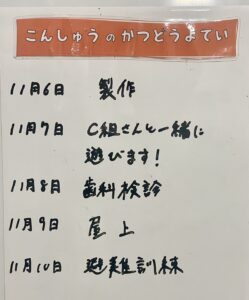 こんしゅうのかつどうよてい
11月6日 製作
11月7日 C組さんと一緒に
遊びます!
11月8日 歯科検診
11月9日 屋上
11月10日 避難訓練